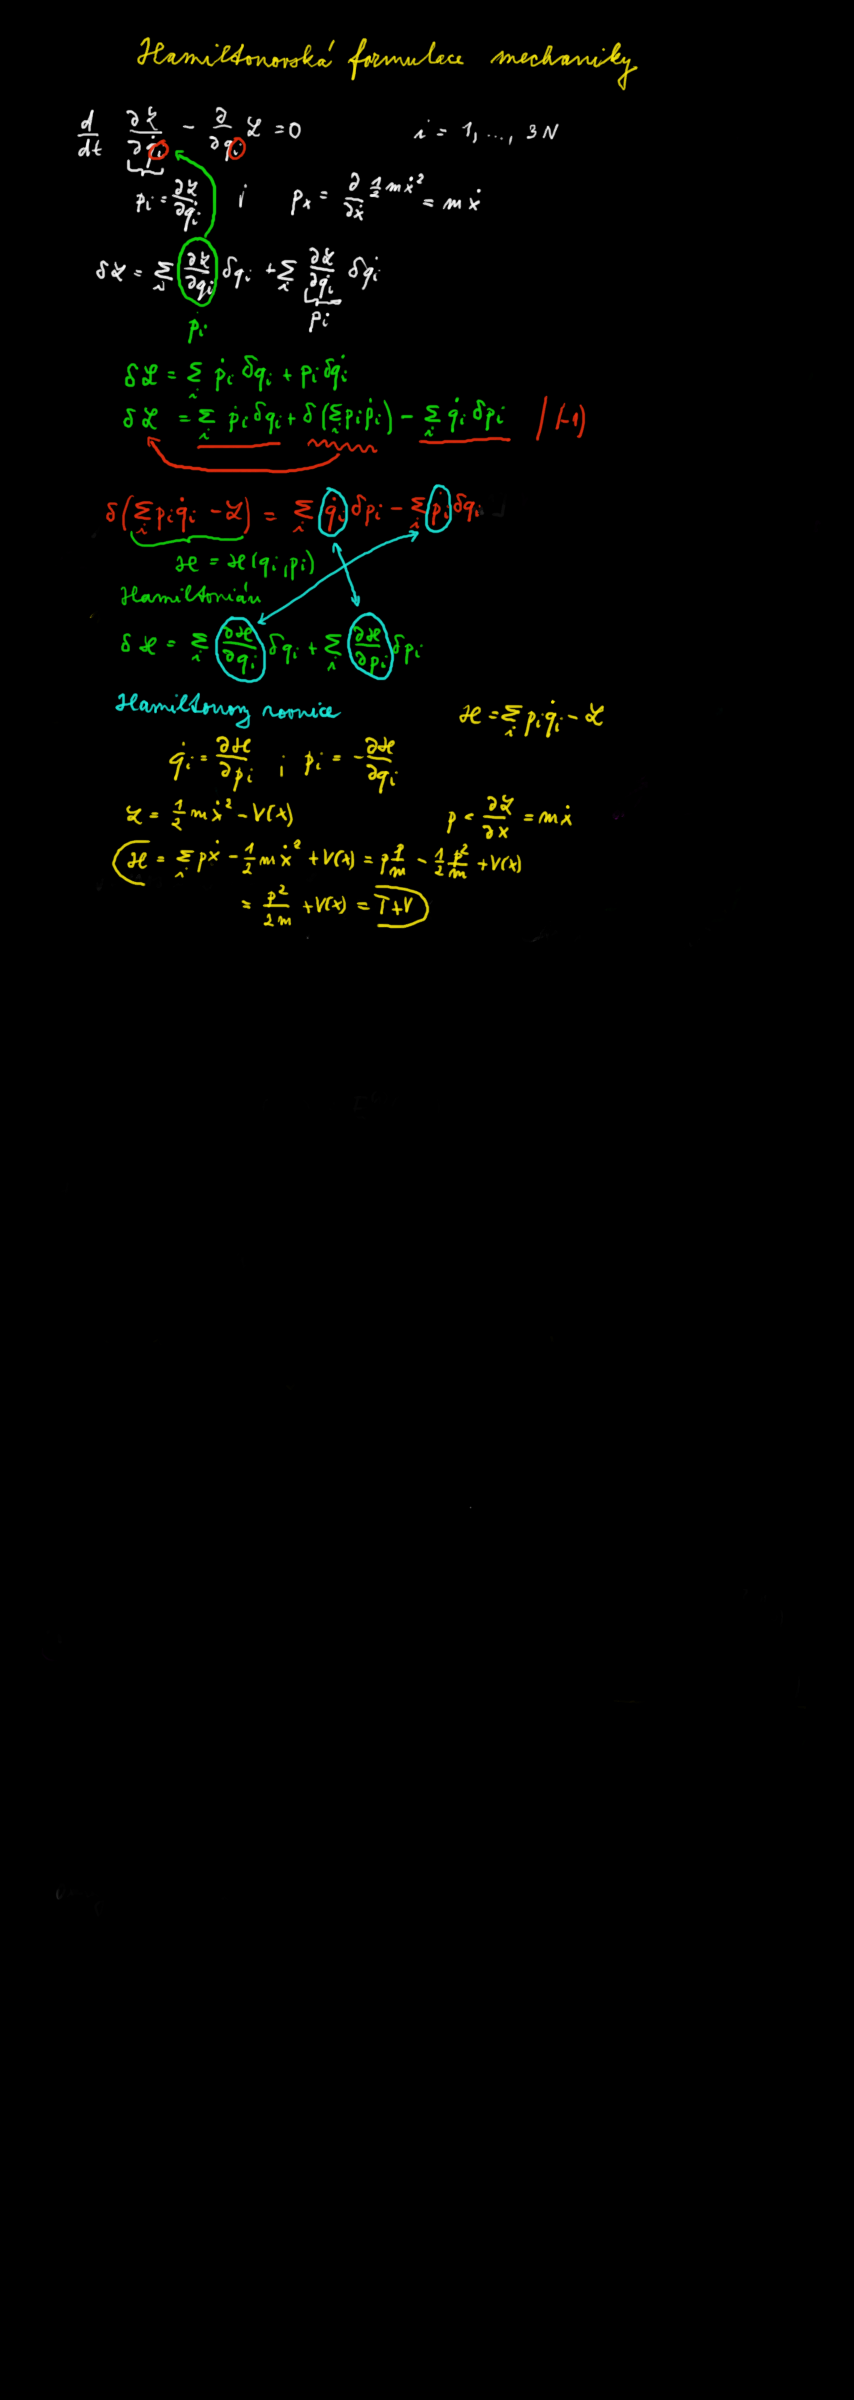 Hamiltonovská formulace mechaniky
d/dt ∂ℒ/∂q̇ᵢ − ∂/∂qᵢ ℒ = 0 i = 1, ..., 3N
pᵢ = ∂ℒ/∂q̇ᵢ ; pₓ = ∂/∂ẋ ½mẋ² = mẋ
δℒ = Σᵢ ∂ℒ/∂qᵢ δqᵢ + Σᵢ ∂ℒ/∂q̇ᵢ δq̇ᵢ
ṗᵢ pᵢ
δℒ = Σᵢ ṗᵢ δqᵢ + pᵢ δq̇ᵢ
δℒ = Σᵢ ṗᵢ δqᵢ + δ(Σᵢ pᵢṗᵢ) − Σᵢ q̇ᵢ δpᵢ /(-1)
δ(Σᵢ pᵢq̇ᵢ − ℒ) = Σᵢ q̇ᵢ δpᵢ − Σᵢ ṗᵢ δqᵢ
ℋ = ℋ(qᵢ, pᵢ)
Hamiltonián
δℋ = Σᵢ ∂ℋ/∂qᵢ δqᵢ + Σᵢ ∂ℋ/∂pᵢ δpᵢ
Hamiltonovy rovnice ℋ = Σᵢ pᵢq̇ᵢ − ℒ
q̇ᵢ = ∂ℋ/∂pᵢ ; ṗᵢ = −∂ℋ/∂qᵢ
ℒ = ½mẋ² − V(x) p = ∂ℒ/∂ẋ = mẋ
ℋ = Σᵢ pẋ − ½mẋ² + V(x) = p p/m − ½ p²/m + V(x)
= p²/2m + V(x) = T+V